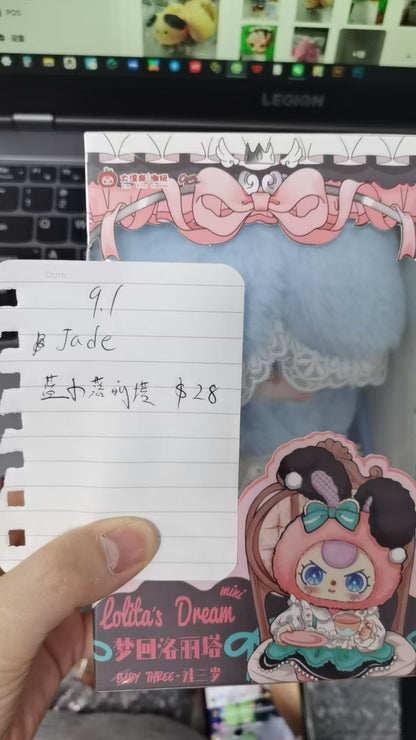 POS
LEGION
大漂亮潮玩
Date:
9.1
Jade
蓝小落丽塔 $28
mini
Lolita's Dream
梦回洛丽塔
BABY THREE-娃三岁